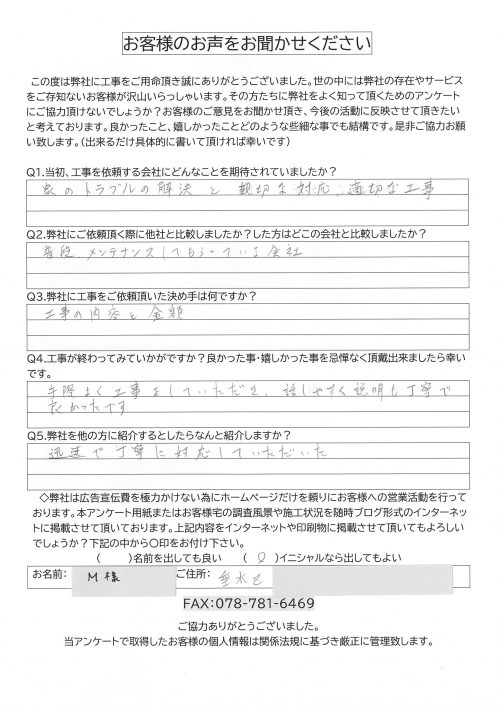 お客様のお声をお聞かせください
この度は弊社に工事をご用命頂き誠にありがとうございました。世の中には弊社の存在やサービス
をご存知ないお客様が沢山いらっしゃいます。その方たちに弊社をよく知って頂くためのアンケート
にご協力頂けないでしょうか?お客様のご意見をお聞かせ頂き、今後の活動に反映させて頂きたい
と考えております。良かったこと、嬉しかったことどのような些細な事でも結構です。是非ご協力お願
い致します。(出来るだけ具体的に書いて頂ければ幸いです)
Q1.当初、工事を依頼する会社にどんなことを期待されていましたか?
家のトラブルの解決と親切な対応、適切な工事
Q2.弊社にご依頼頂く際に他社と比較しましたか?した方はどこの会社と比較しましたか?
普段メンテナンスしてもらっている会社
Q3.弊社に工事をご依頼頂いた決め手は何ですか?
工事の内容と金額
Q4.工事が終わってみていかがですか?良かった事・嬉しかった事を忌憚なく頂戴出来ましたら幸い
です。
手際よく工事をしていただき、話しやすく説明も丁寧で
良かったです
Q5.弊社を他の方に紹介するとしたらなんと紹介しますか?
迅速で丁寧に対応していただいた
◇弊社は広告宣伝費を極力かけない為にホームページだけを頼りにお客様への営業活動を行って
おります。本アンケート用紙またはお客様宅の調査風景や施工状況を随時ブログ形式のインターネッ
トに掲載させて頂いております。上記内容をインターネットや印刷物に掲載させて頂いてもよろしい
でしょうか?下記の中から〇印をお付け下さい。
(　　)名前を出しても良い　(○)イニシャルなら出してもよい
お名前:　M様　ご住所:　垂水区
FAX:078-781-6469
ご協力ありがとうございました。
当アンケートで取得したお客様の個人情報は関係法規に基づき厳正に管理致します。